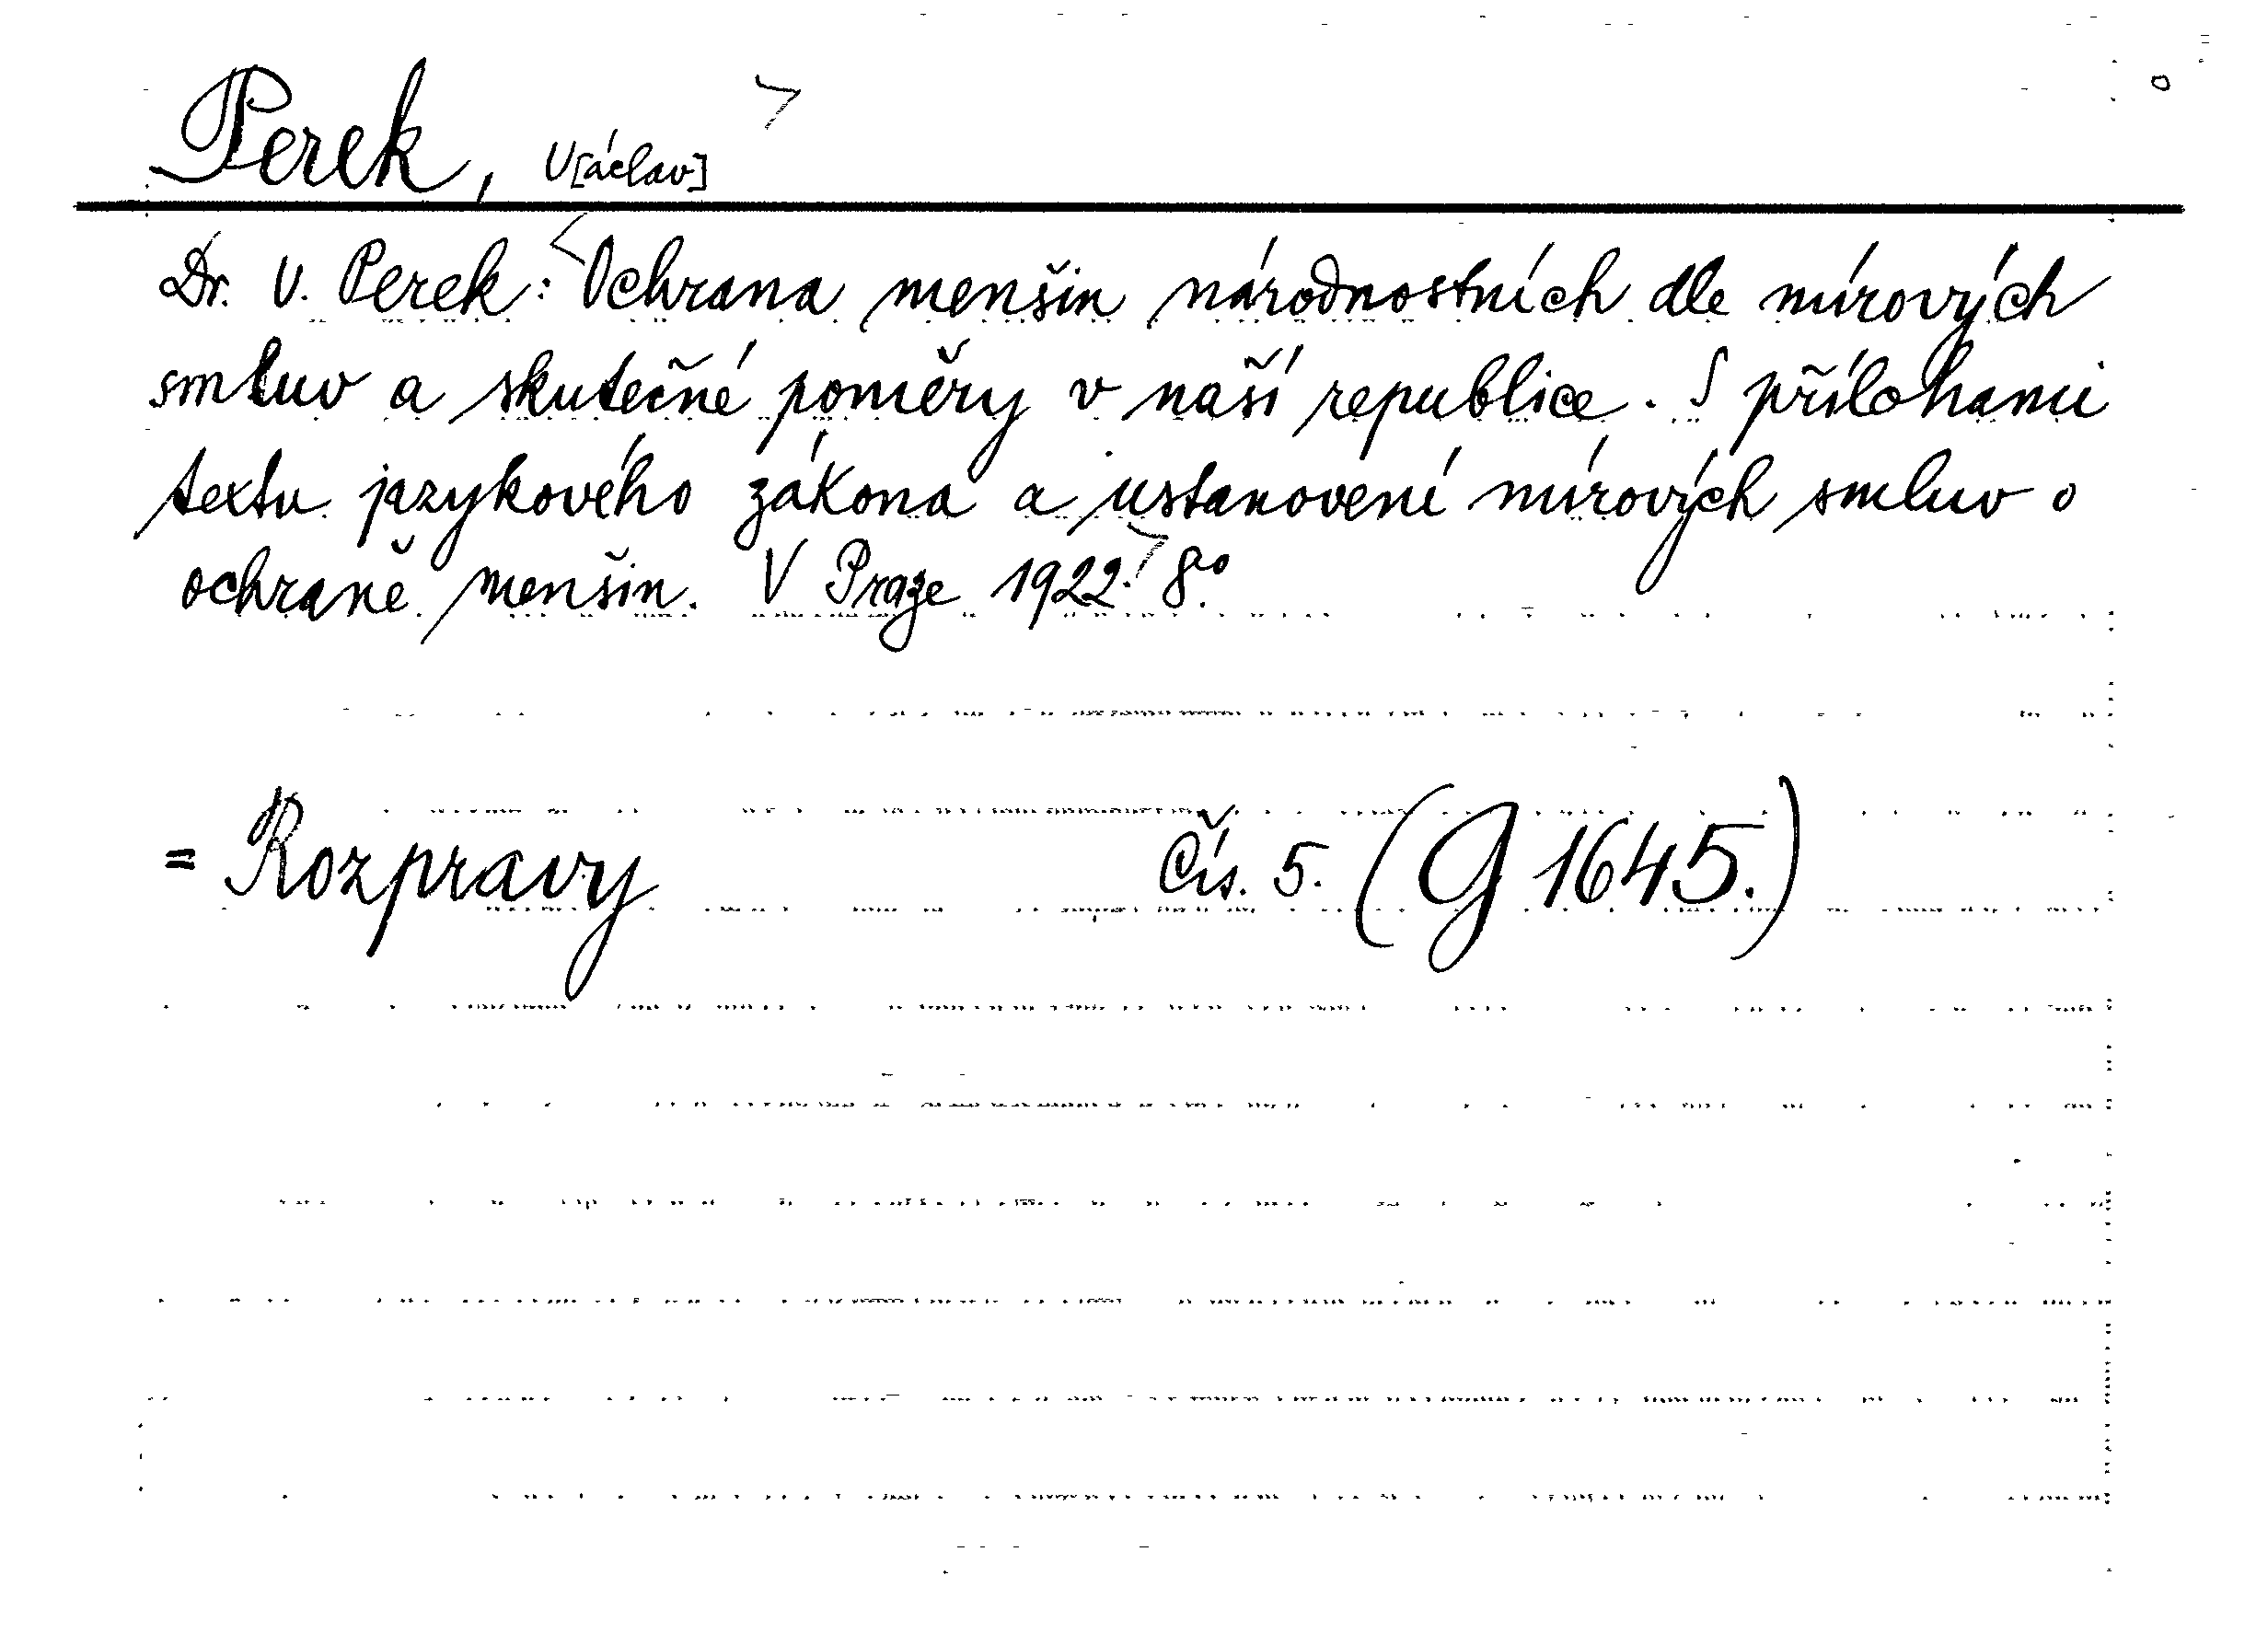 Perek, V[áclav]
Dr. V. Perek: Ochrana menšin národnostních dle mírových
smluv a skutečné poměry v naší republice. S přílohami
textu jazykového zákona a ustanovení mírových smluv o
ochraně menšin. V Praze 1922. 8°.
= Rozpravy čís. 5. (G 1645.)